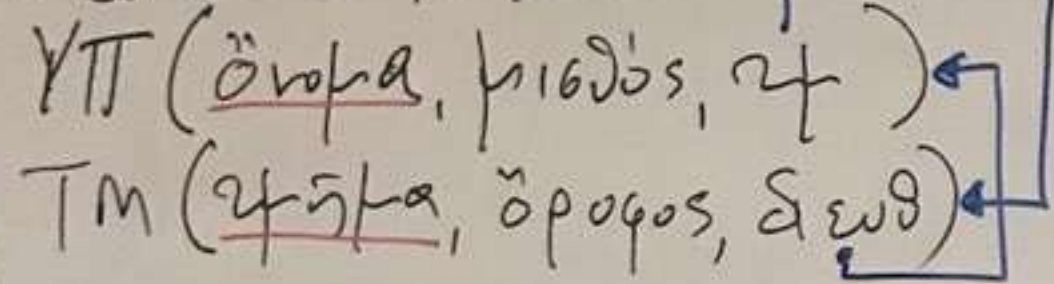 ΥΠ (όνομα, μισθός, τμ)
ΤΜ (τμήμα, όροφος, διευθ)